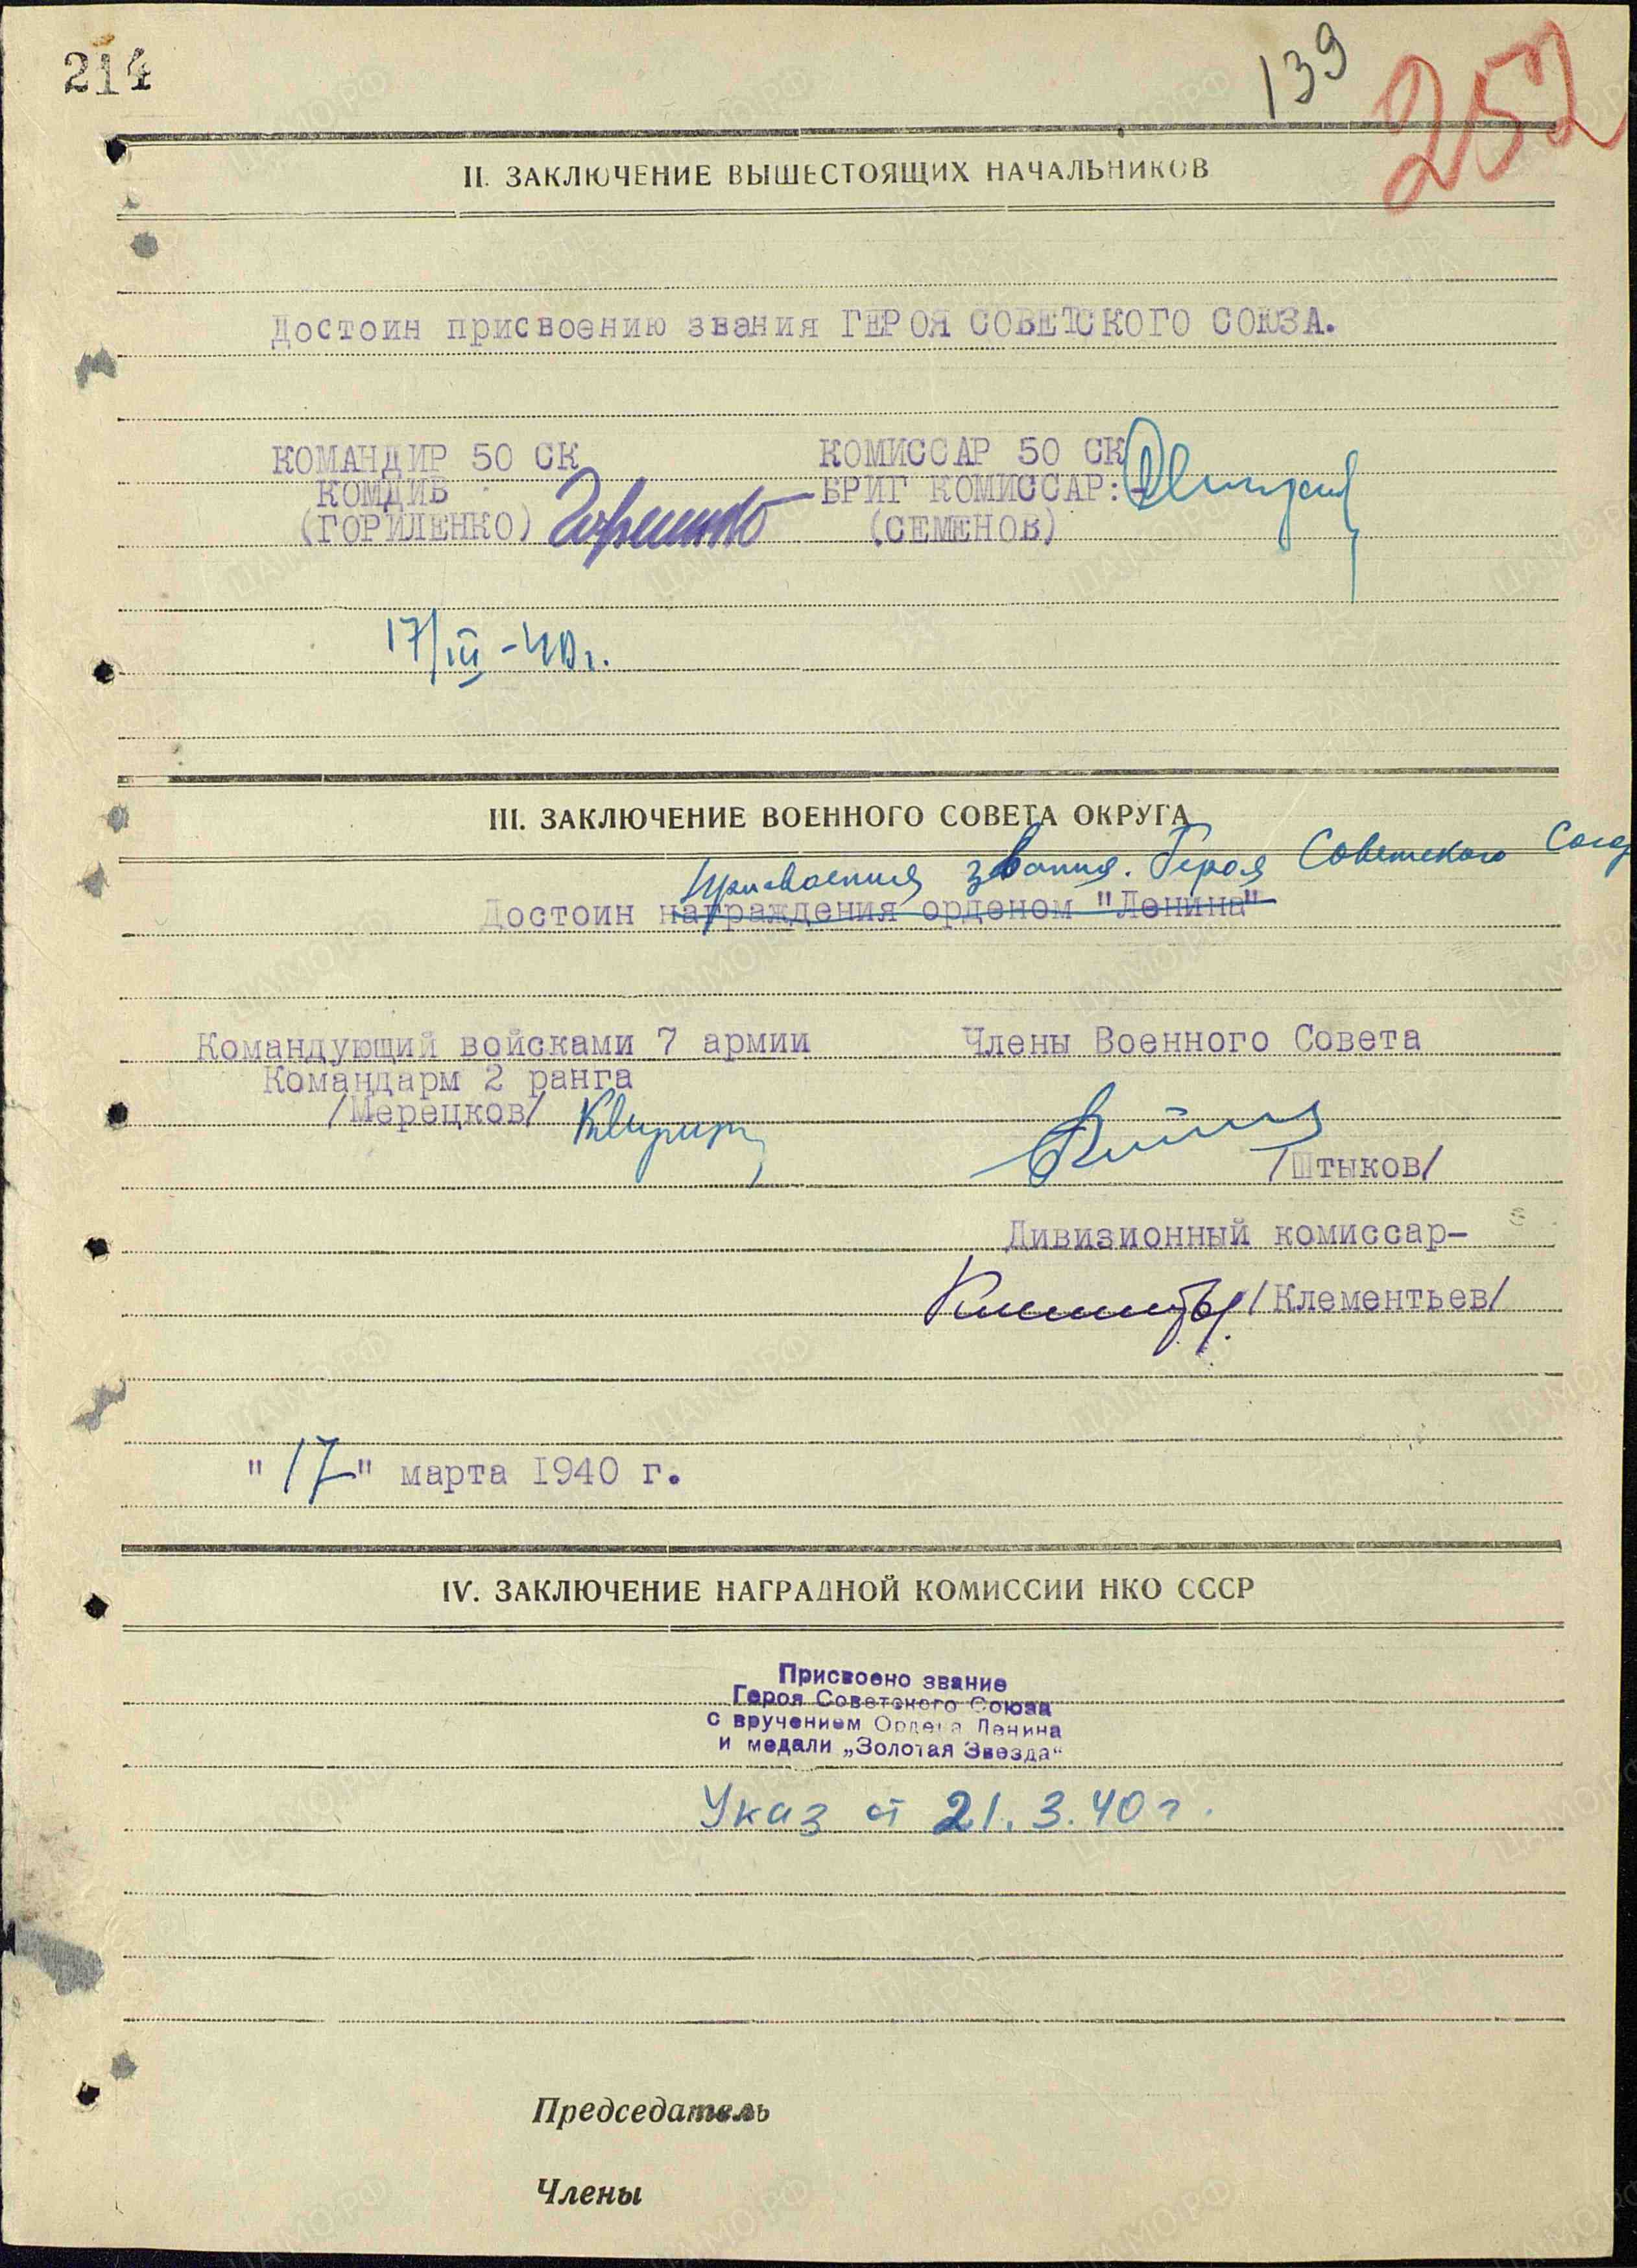 214
139
252
II. ЗАКЛЮЧЕНИЕ ВЫШЕСТОЯЩИХ НАЧАЛЬНИКОВ
Достоин присвоению звания ГЕРОЯ СОВЕТСКОГО СОЮЗА.
КОМАНДИР 50 СК КОМИССАР 50 СК
КОМДИВ БРИГ КОМИССАР:-
(ГОРИЛЕНКО) (СЕМЕНОВ)
17/III-40г.
III. ЗАКЛЮЧЕНИЕ ВОЕННОГО СОВЕТА ОКРУГА
присвоения звания. Героя Советского Союз
Достоин награждения орденом "Ленина"
Командующий войсками 7 армии Члены Военного Совета
Командарм 2 ранга
/Мерецков/
/Штыков/
Дивизионный комиссар-
/Клементьев/
"17" марта 1940 г.
IV. ЗАКЛЮЧЕНИЕ НАГРАДНОЙ КОМИССИИ НКО СССР
Присвоено звание
Героя Советского Союза
с вручением Ордена Ленина
и медали „Золотая Звезда“
Указ от 21.3.40г.
Председатель
Члены